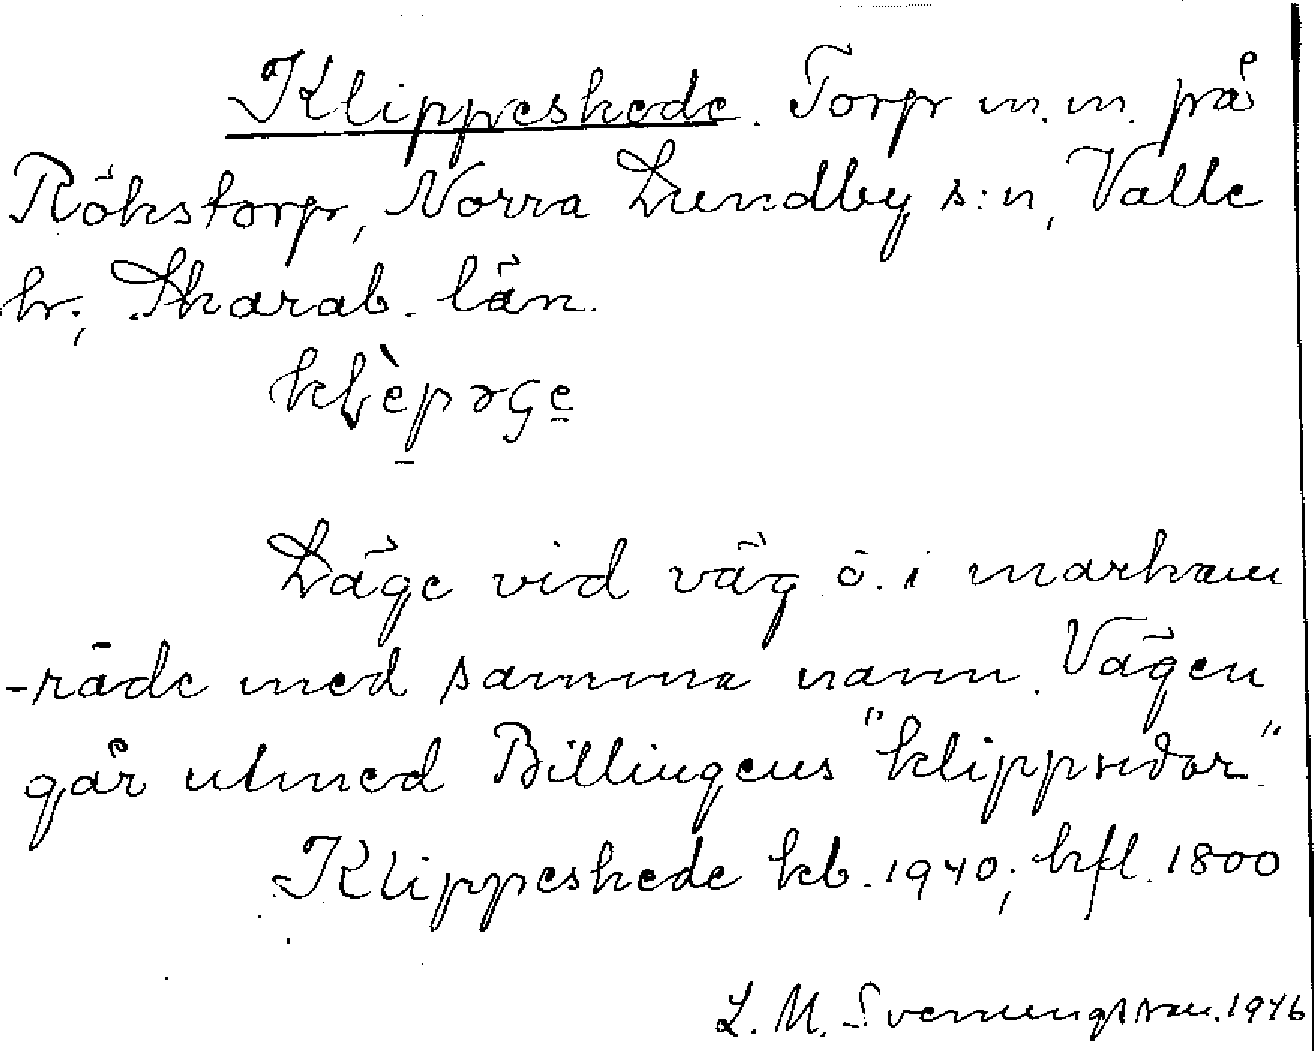 Klippeskede. Torp m.m. på
Rökstorp, Norra Lundby s:n, Valle
hr; Skarab. län.

Läge vid väg ö. i markom
-råde med samma namn. Vägen
går utmed Billingens "klippsidor".
Klippeskede kb. 1940; hfl. 1800
L. M. Svenungsson. 1946